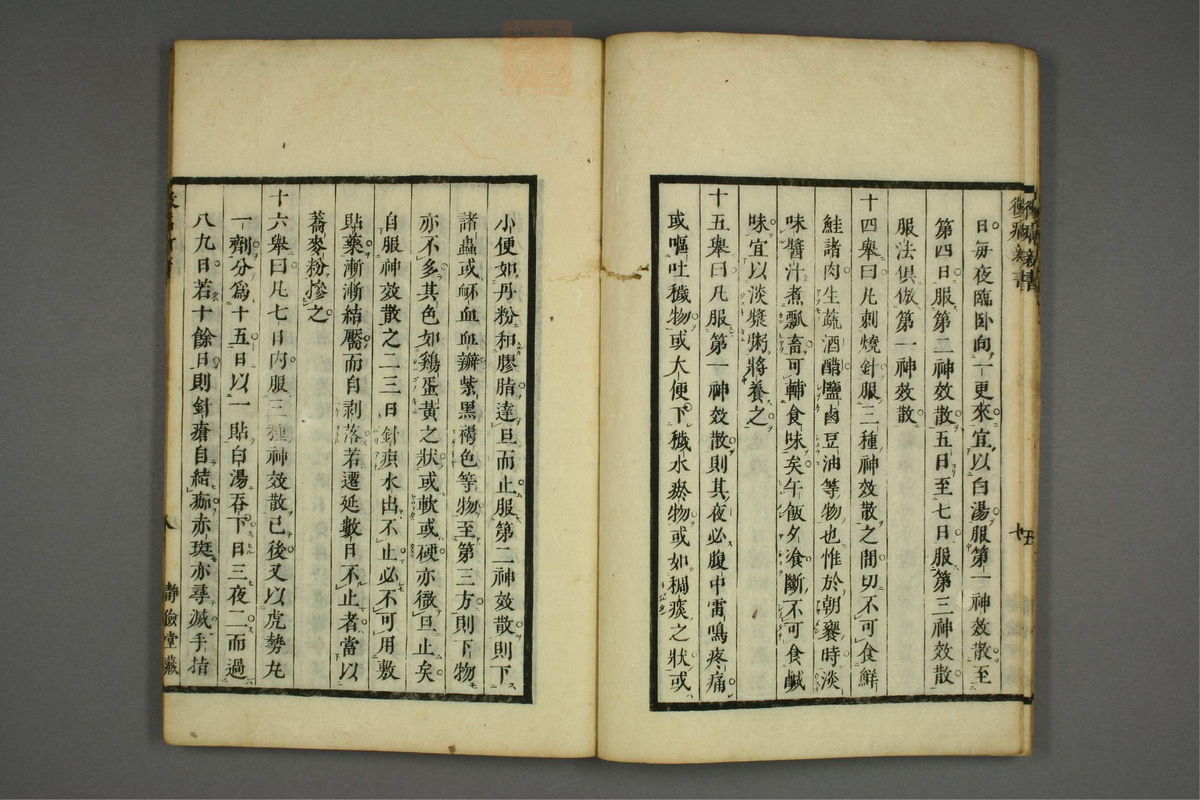 日毎夜臨卧向一更來宜以白湯服第一神效散至
第四日服第二神效散五日至七日服第三神效散
服法俱倣第一神效散
十四舉曰凡刺燒針服三種神效散之間切不可食鮮
鮭諸肉生蔬酒醋鹽鹵豆油等物也惟於朝饔時淡
味醬汁煮瓢畜可輔食味矣午飯夕飡斷不可食鹹
味宜以淡漿粥將養之
十五舉曰凡服第一神效散則其夜必腹中雷鳴疼痛
或嘔吐穢物或大便下穢水瘀物或如稠痰之狀或
小便如丹粉和膠脂達旦而止服第二神效散則下
諸蟲或衃血血瓣紫黑褐色等物至第三方則下物
亦不多其色如鷄蛋黃之狀或軟或硬亦徹旦止矣
自服神效散之二三日針痕水出不止必不可用敷
貼藥漸漸結靨而自剥落若遷延數日不止者當以
蕎麥粉摻之
十六舉曰凡七日內服三種神效散已後又以虎勢丸
一劑分爲十五日以一貼白湯吞下日三夜二而過
八九日若十餘日則針瘡自結痂赤斑亦尋滅手指
八
靜儉堂藏